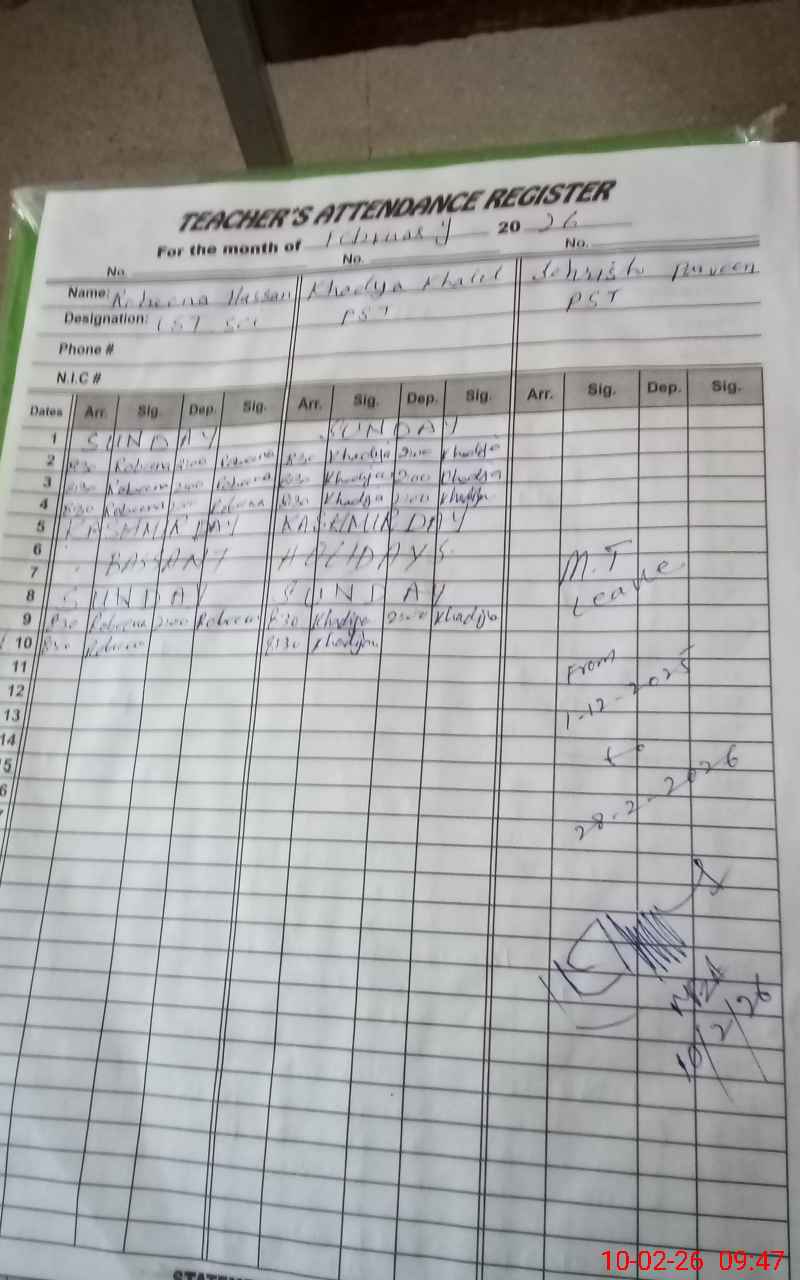 TEACHER'S ATTENDANCE REGISTER
For the month of February 2026
No. No. No.
Name: Robeena Hassan Khadija Khalil Sehrish Parveen
Designation: PST PST
Phone #
N.I.C #
Dates Arr. Sig. Dep. Sig. Arr. Sig. Dep. Sig. Arr. Sig. Dep. Sig.
1 SUNDAY SUNDAY
2 8:30 Robeena 2:00 Robeena 8:30 Khadija 2:00 Khadija
3 8:30 Robeena 2:00 Robeena 8:30 Khadija 2:00 Khadija
4 8:30 Robeena 2:00 Robeena 8:30 Khadija 2:00 Khadija
5 KASHMIR DAY KASHMIR DAY
6 BASSANT HOLIDAYS
7
8 SUNDAY SUNDAY
9 8:30 Robeena 2:00 Robeena 8:30 Khadija 2:00 Khadija
10 8:30 Robeena 8:30 Khadija
11
12
13
14
5
6
M.T
Leave
From
1-12-2025
to
28-2-2026
10/2/26
10-02-26 09:47